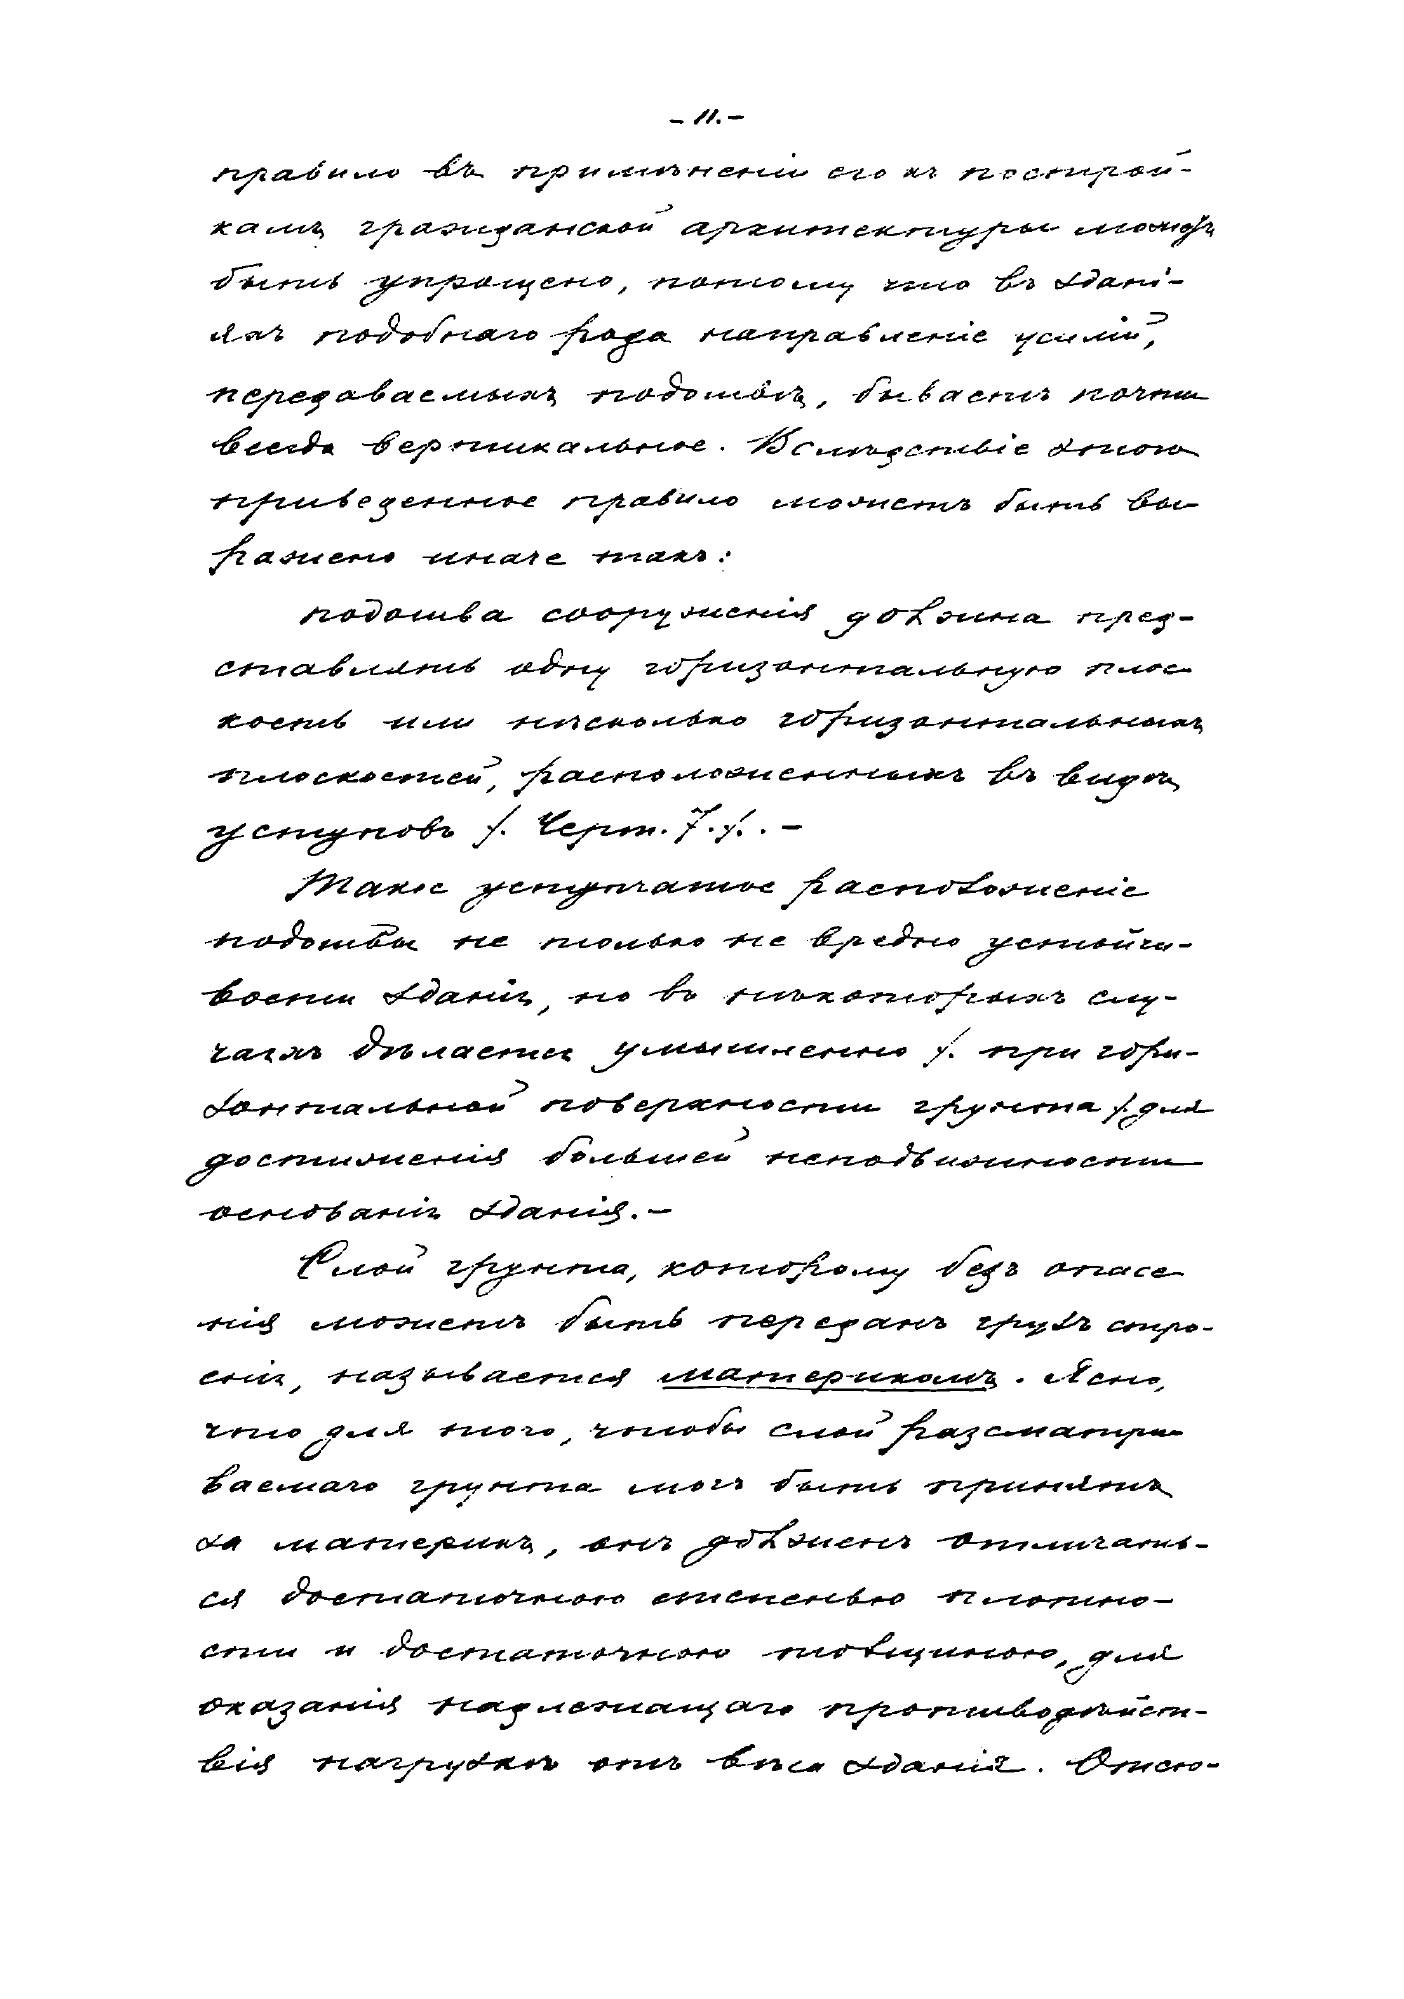 - 11. -
правило въ примѣненiи его къ построй-
камъ гражданской архитектуры можетъ
быть упрощено, потому что въ здані-
яхъ подобнаго рода направленіе усилій,
передаваемыхъ подошвѣ, бываетъ почти
всегда вертикальное. Вслѣдствіе этого
приведенное правило можетъ быть вы-
ражено иначе такъ:
подошва сооруженія должна пред-
ставлять одну горизонтальную плос-
кость или нѣсколько горизонтальныхъ
плоскостей, расположенныхъ въ видѣ
уступовъ /. Черт. 7. /. . -
Такое уступчатое расположеніе
подошвы не только не вредно устойчи-
вости зданія, но въ нѣкоторыхъ слу-
чаяхъ дѣлается умышленно /. при гори-
зонтальной поверхности грунта /. для
достиженія большей неподвижности
основанія зданія. -
Слой грунта, которому безъ опасе-
нія можетъ быть переданъ грузъ строе-
нія, называется материкомъ. Ясно,
что для того, чтобы слой разсматри-
ваемаго грунта могъ быть принятъ
за материкъ, онъ долженъ отличать-
ся достаточною степенью плотно-
сти и достаточною толщиною, для
оказанія надлежащаго противодѣйст-
вія нагрузкѣ отъ вѣса зданія. Отсю-